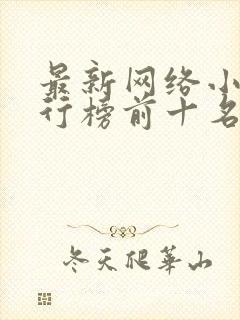 最新网络小
行榜前十名
冬天爬华山